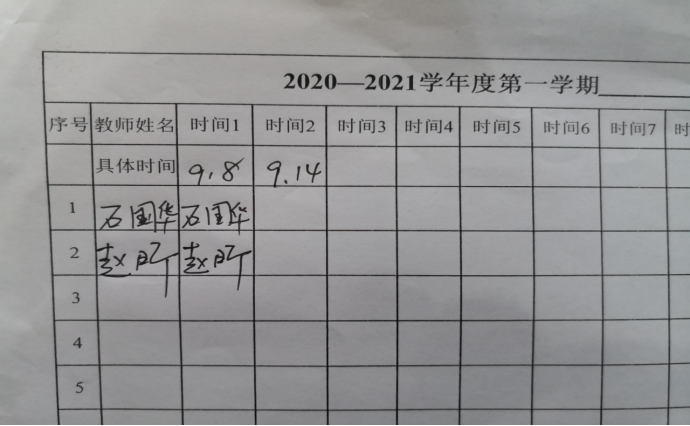 2020—2021学年度第一学期
序号 教师姓名 时间1 时间2 时间3 时间4 时间5 时间6 时间7 时
具体时间 9.8 9.14
1 石国华 石国华
2 赵 赵
3
4
5